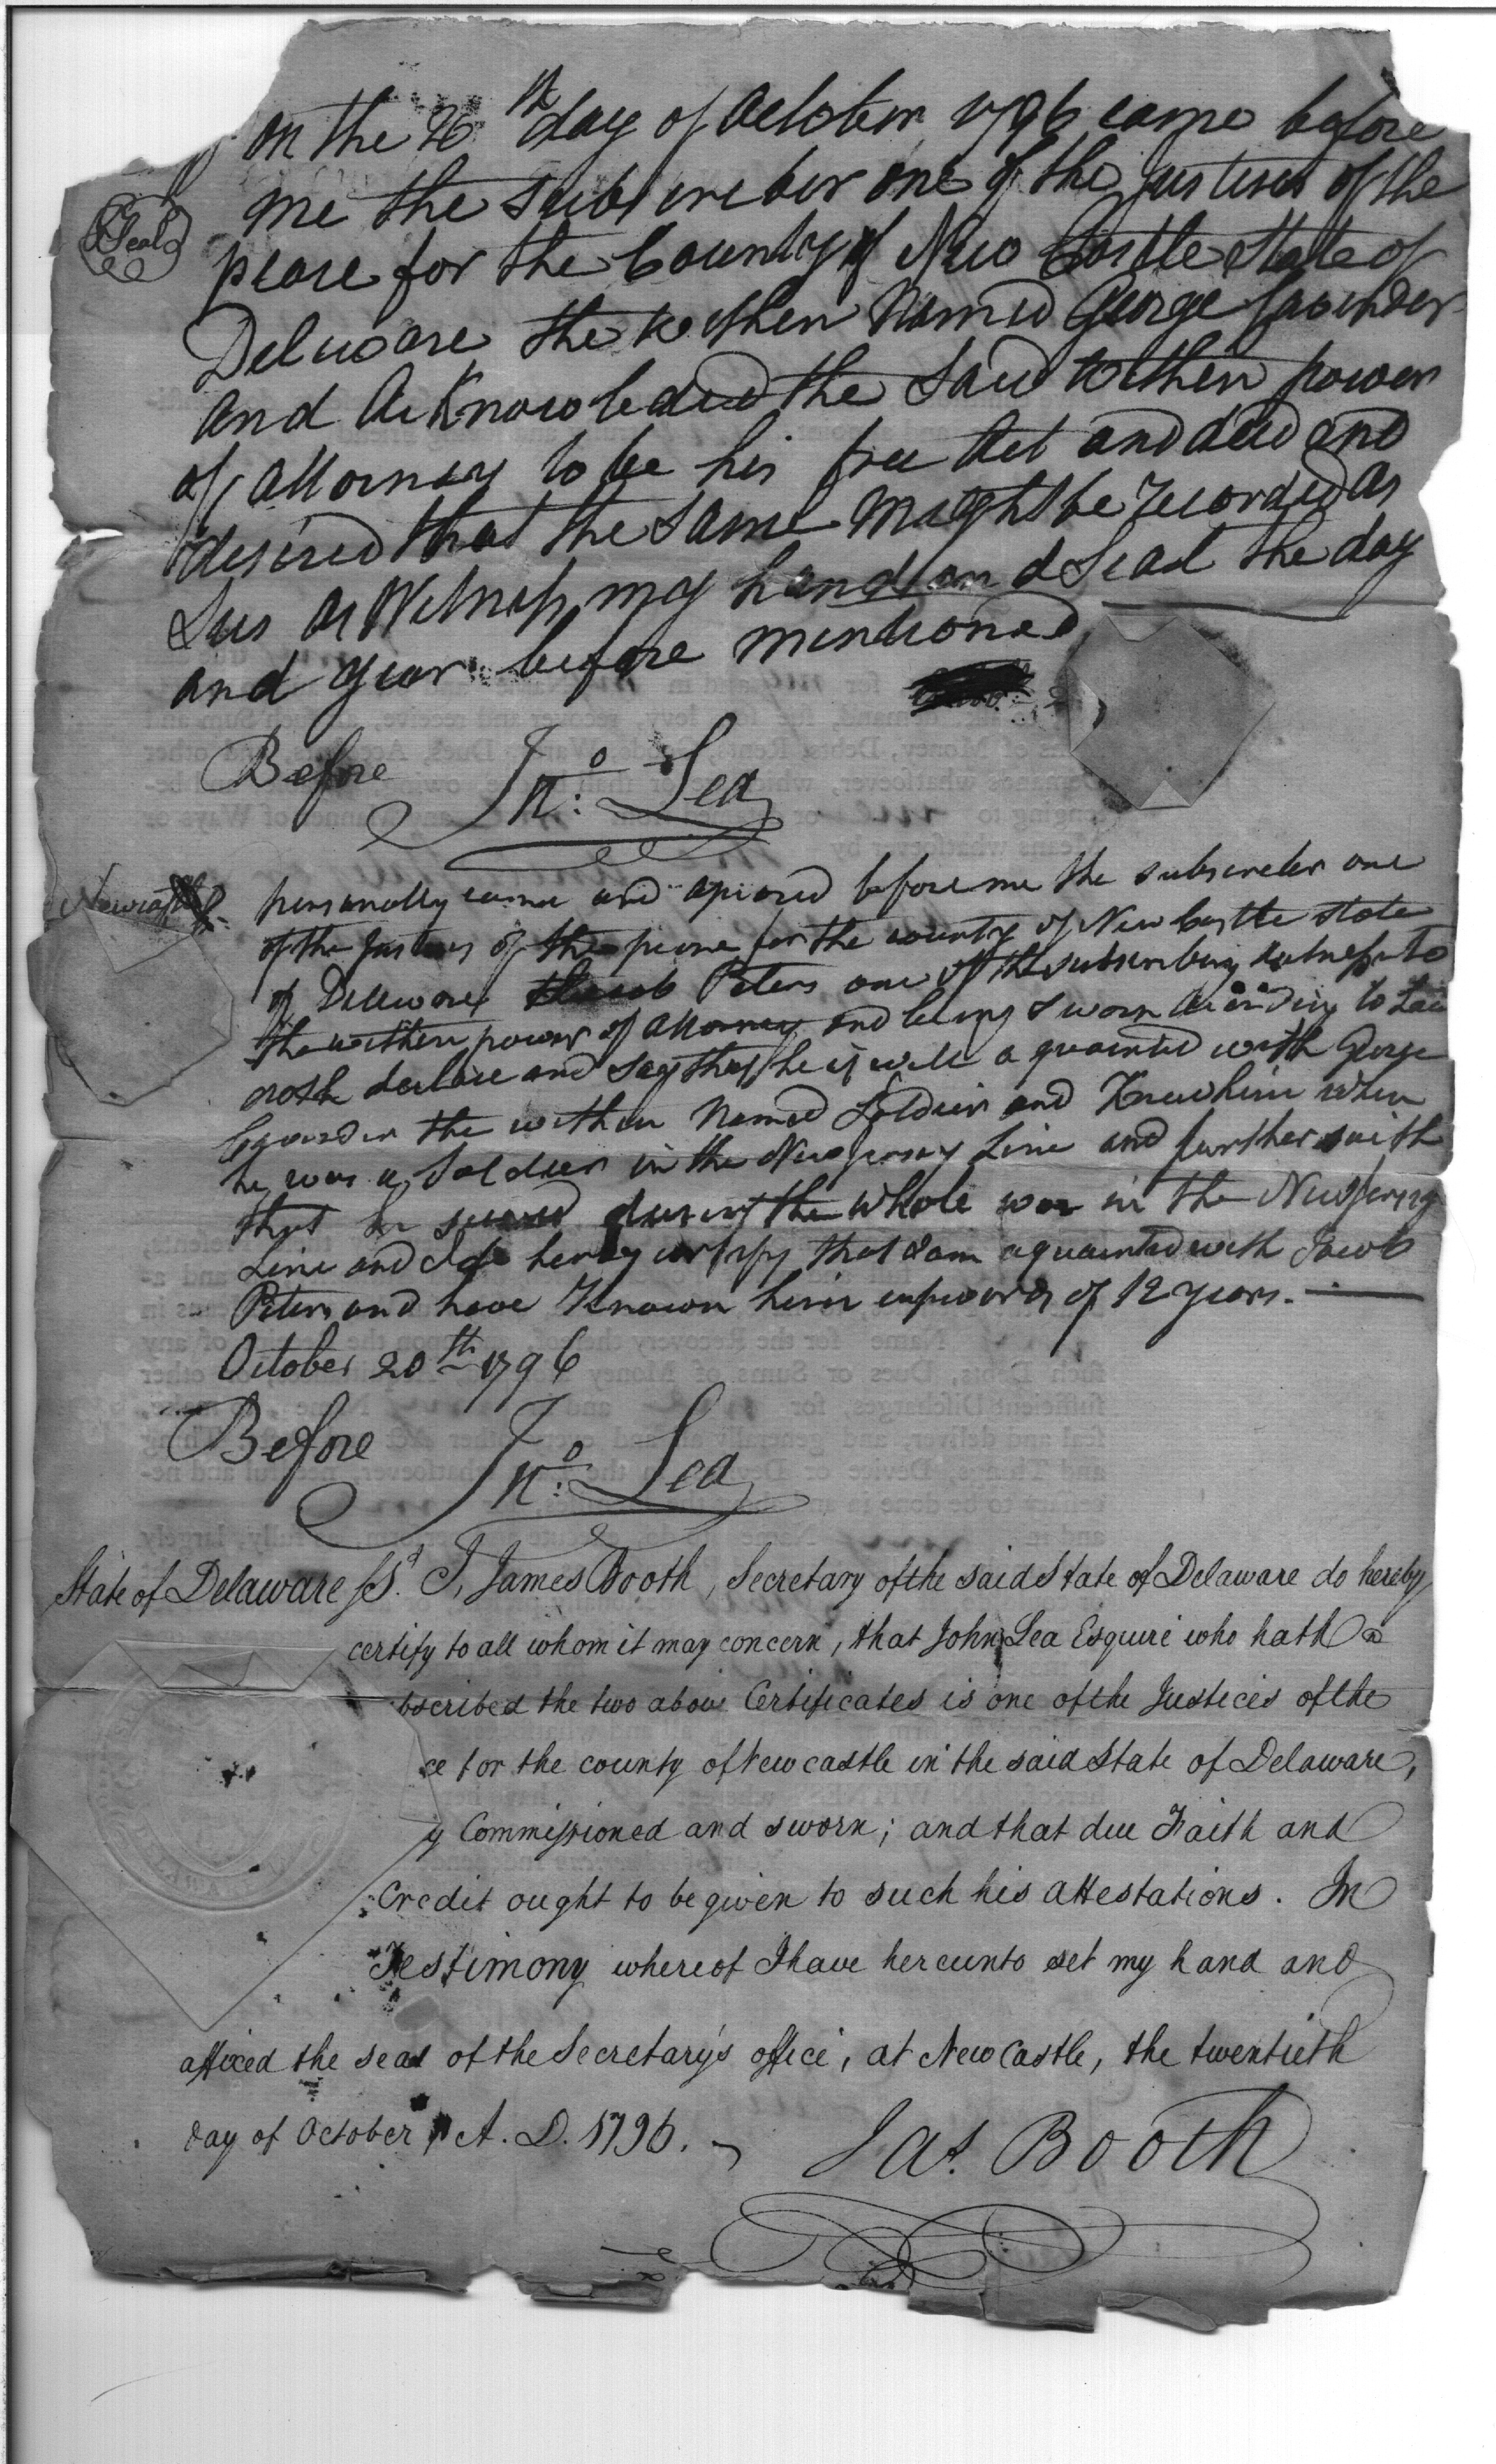 on the 20th day of October 1796 came before
Seal
me the Subscriber one of the justices of the
peace for the County of New Castle State of
Deluware the within Named George
and Acknowledged the Said within power
of attorney to be his free Act and deed and
desired that the same might be recorded as
Such As Witness my hand and Seal the day
and year before mentioned
Before Jno: Lea
Newcastle personally came and apeared before me the subscreber one
of the Justices of the peace for the county of New Castle state
of Delleware Jacob Peters one of the subscribing witness to
the within power of attorney and being sworn according to Law
doth declare and say that he is well aquainted with George
the within Named Soldier and Knew him when
he was a Soldier in the New Jersey Line and further saith
that he served during the whole war in the New Jersey
Line and I do hereby certify that I am aquainted with Jacob
Peters and have Known him upwards of 12 years.
October 20th 1796
Before Jno: Lea
State of Delaware Ss. I, James Booth, Secretary of the said State of Delaware do hereby
certify to all whom it may concern, that John Lea Esquire who hath
bscribed the two above Certificates is one of the Justices of the
ce for the county of Newcastle in the said State of Delaware,
y Commissioned and sworn; and that due Faith and
Credit ought to be given to such his attestations. In
Testimony whereof I have hereunto set my hand and
affixed the seal of the Secretary's office, at New Castle, the twentieth
day of October A. D. 1796.
Jas. Booth